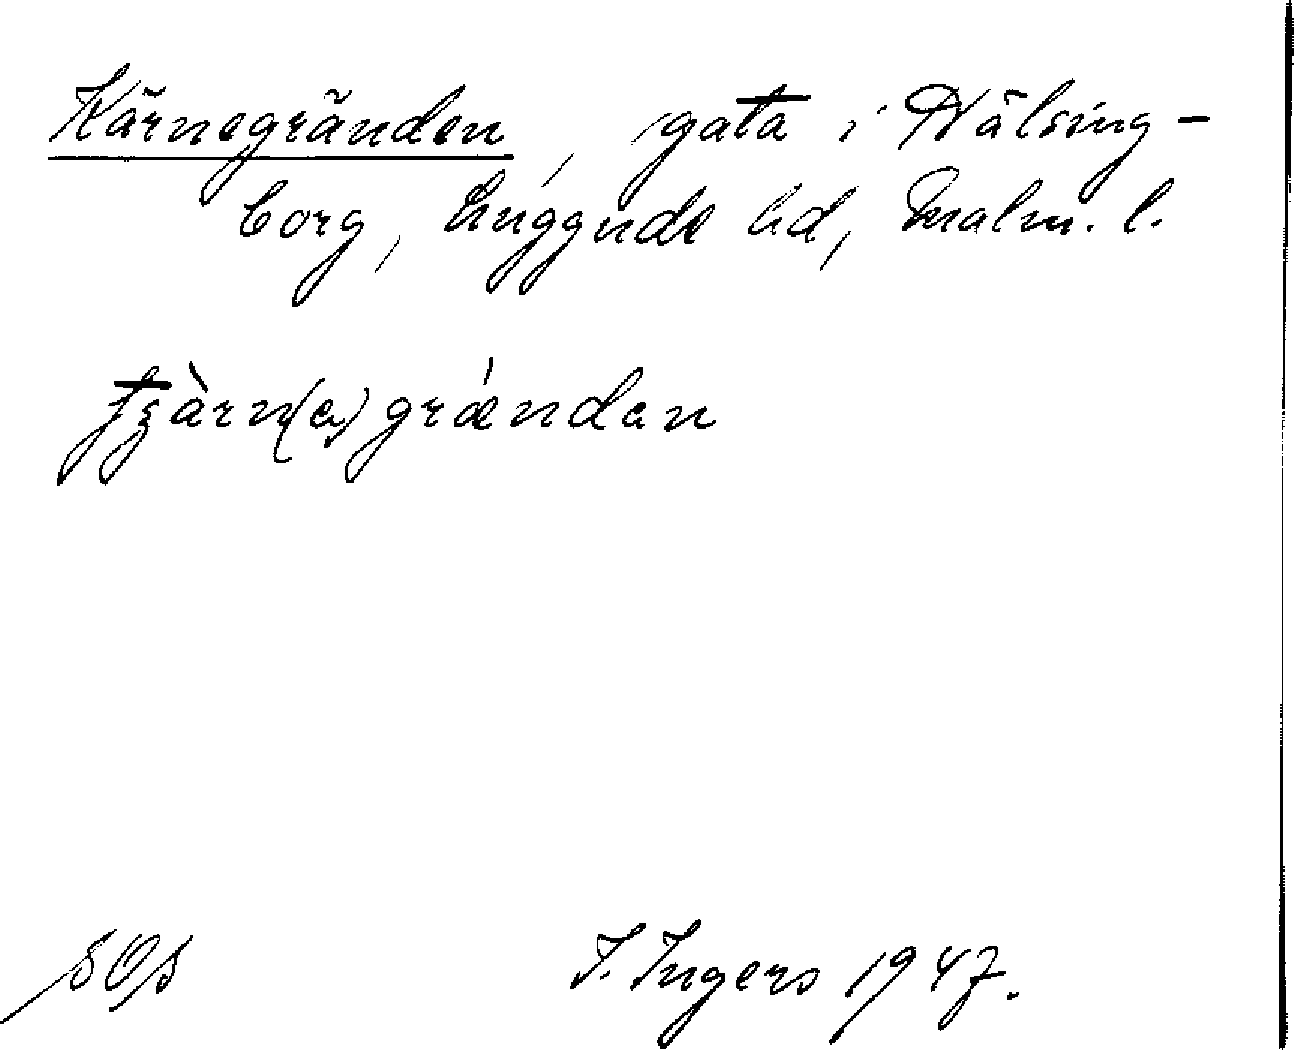 Kärnegränden, gata i Hälsing-
borg, Luggude hd, Malm. l.
tʒàrn(ə)grǽndən
SOA
I. Ingers 1947.